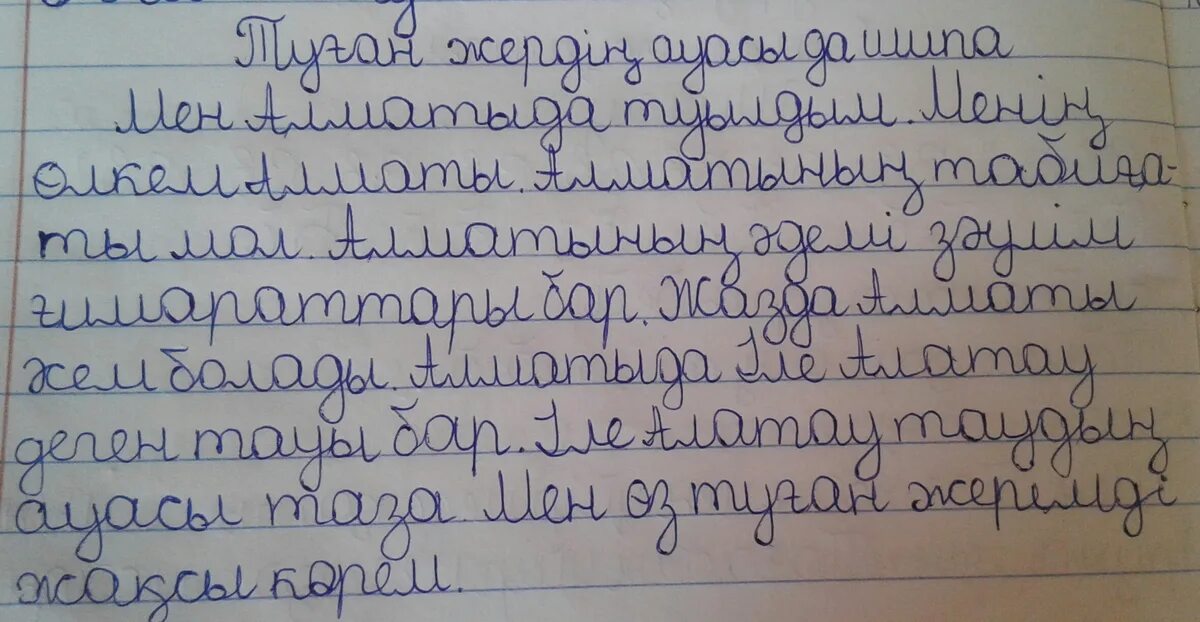 Туған жердің ауасы да шипа
Мен Алматыда туылдым. Менің
өлкем Алматы. Алматының табиға-
ты мол. Алматының әдемі зәулім
ғимараттары бар. Жазда Алматы
жем болады. Алматыда Іле Алатау
деген тауы бар. Іле Алатау таудың
ауасы таза. Мен өз туған жерімді
жақсы көрем.